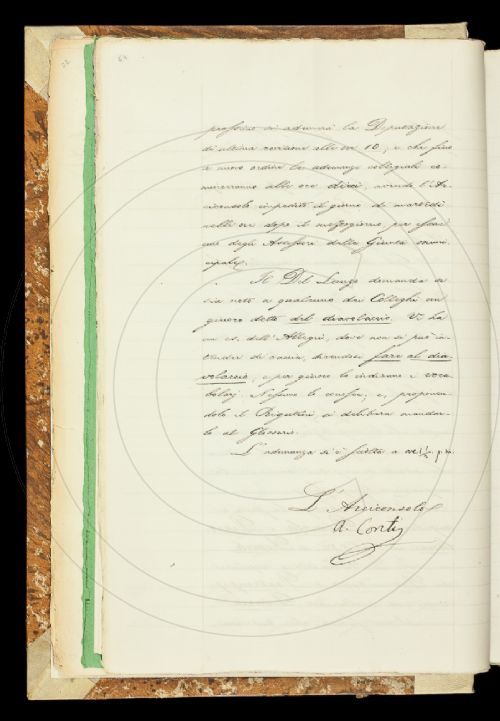 prossimo si adunerà la Deputazione
di ultima revisione alle ore 10; e che fino
a nuovo ordine le adunanze collegiali co-
minceranno alle ore dieci, avendo l'Ar-
ciconsolo impedito il giorno di martedì
nelle ore dopo il mezzogiorno per essere
uno degli Assessori della Giunta muni-
cipale.
Il Del Lungo domanda se
sia noto a qualcuno dei Colleghi un
giuoco detto del diavolaccio. V'ha
un es. dell'Allegri, dove non si può in-
tender di caccia, dicendosi fare al dia-
volaccio, e per giuoco lo indicano i voca-
bolarj. Nessuno lo conosce; e, proponen-
dolo il Brigidi, si delibera mandar-
lo al Glossario.
L'adunanza si è sciolta a ore
L'Arciconsolo
A. Conti